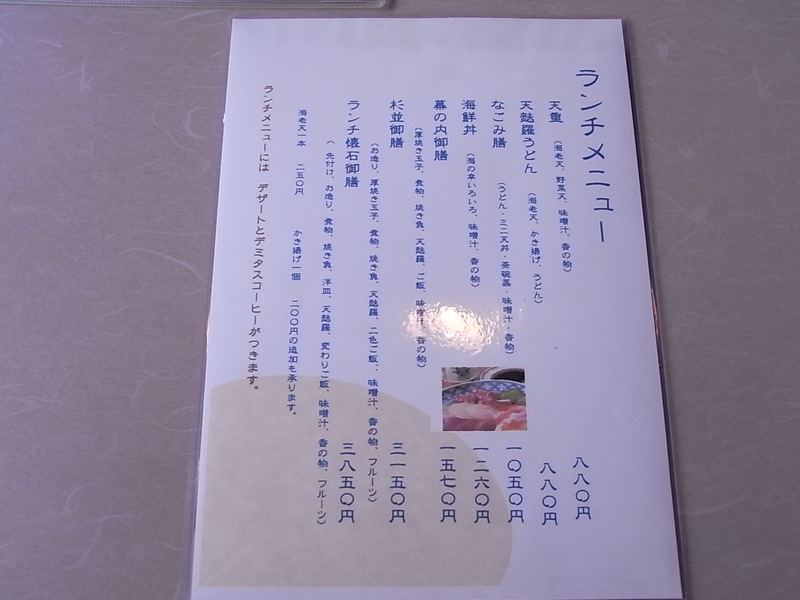 ランチメニュー
天重
（海老天、野菜天、味噌汁、香の物）
八八〇円
天麩羅うどん
（海老天、かき揚げ、うどん）
八八〇円
なごみ膳
（うどん・ミニ天丼・茶碗蒸・味噌汁・香の物）
一〇五〇円
海鮮丼
（海の幸いろいろ、味噌汁、香の物）
一二六〇円
幕の内御膳
（厚焼き玉子、煮物、焼き魚、天麩羅、ご飯、味噌汁、香の物）
一五七〇円
杉並御膳
（お造り、厚焼き玉子、煮物、焼き魚、天麩羅、二色ご飯、味噌汁、香の物、フルーツ）
三一五〇円
ランチ懐石御膳
（先付け、お造り、煮物、焼き魚、洋皿、天麩羅、変わりご飯、味噌汁、香の物、フルーツ）
三八五〇円
海老天一本　二五〇円　かき揚げ一個　二〇〇円の追加も承ります。
ランチメニューには　デザートとデミタスコーヒーがつきます。